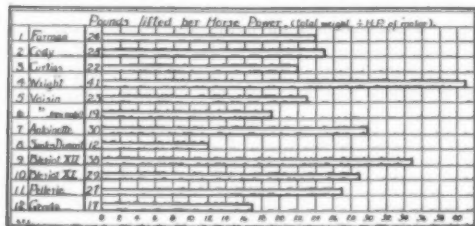 Pounds lifted per Horse Power. (total weight ÷ H.P. of motor).
1 Farman 24
2 Cody 25
3 Curtiss 22
4 Wright 41
5 Voisin 23
6 " 19
7 Antoinette 30
8 Santos Dumont 12
9 Bleriot XII
10 Bleriot XI 29
11 27
12 17
0 2 4 6 8 10 12 14 16 18 20 22 24 26 28 30 32 34 36 38 40